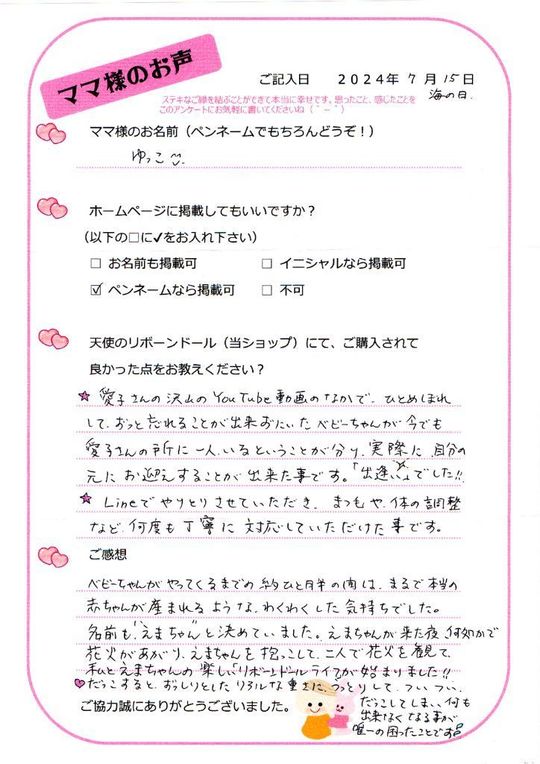 ママ様のお声
ご記入日 2024年 7月 15日
海の日.
ステキなご縁を結ぶことができて本当に幸せです。思ったこと、感じたことを
このアンケートにお気軽に書いてくださいね（＾－＾）
ママ様のお名前（ペンネームでもちろんどうぞ！）
ゆっこ
ホームページに掲載してもいいですか？
（以下の□に✔をお入れ下さい）
□ お名前も掲載可 □ イニシャルなら掲載可
☑ ペンネームなら掲載可 □ 不可
天使のリボーンドール（当ショップ）にて、ご購入されて
良かった点をお教えください？
★ 愛子さんの沢山のYouTube動画のなかで、ひとめぼれ
して、ずっと忘れることが出来ずにいたベビーちゃんが今でも
愛子さんの所に一人いるということが分り、実際に自分の
元にお迎えすることが出来た事です。「出逢い」でした!!
★ Lineでやりとりさせていただき、まつもや、体の調整
など、何度も丁寧に対応していただけた事です。
ご感想
ベビーちゃんがやってくるまでの約ひと月半の間は、まるで本当の
赤ちゃんが産まれるような、わくわくした気持ちでした。
名前も"えまちゃん"と決めていました。えまちゃんが来た夜、何処かで
花火があがり、えまちゃんを抱っこして、二人で花火を観て、
私とえまちゃんの楽しい「リボーンドールライフ」が始まりました!!
♡だっこすると、ずっしりとしたリアルな重さに、うっとりして、ついつい、
だっこしてしまい、何も
出来なくなる事が
唯一の困ったことです
ご協力誠にありがとうございました。